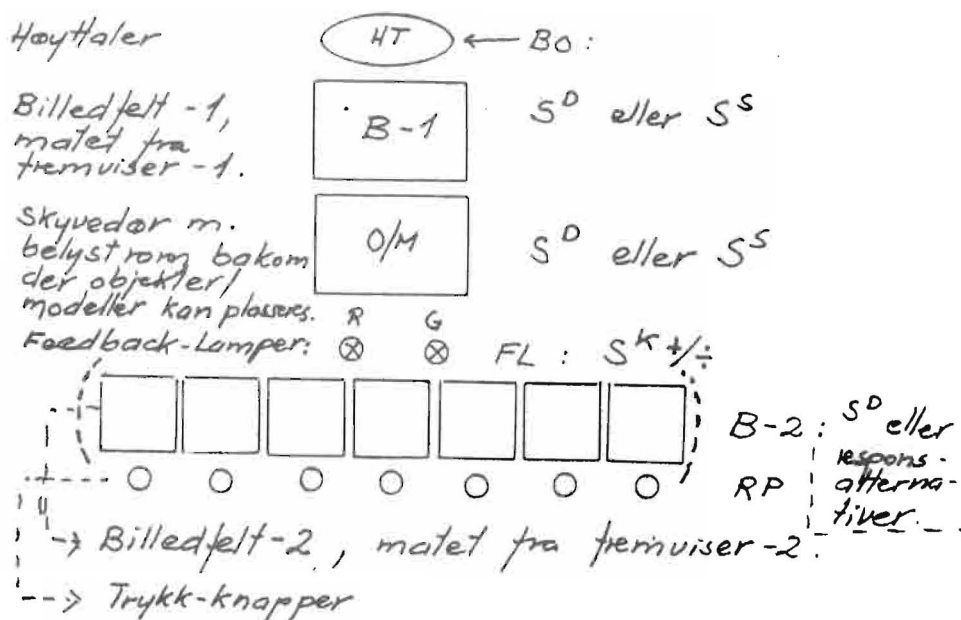 HøyHaler HT ← BO :
Billedfelt -1,
matet fra
fremviser -1.
B-1 S^D eller S^S
Skyvedør m.
belyst rom bakom
der objekter/
modeller kan plasseres.
O/M S^D eller S^S
R G
Feedback-Lamper: FL : S^K +/÷
B-2 : S^D eller
respons-
alterna-
tiver.
RP
Billedfelt-2, matet fra fremviser-2.
Trykk-knapper